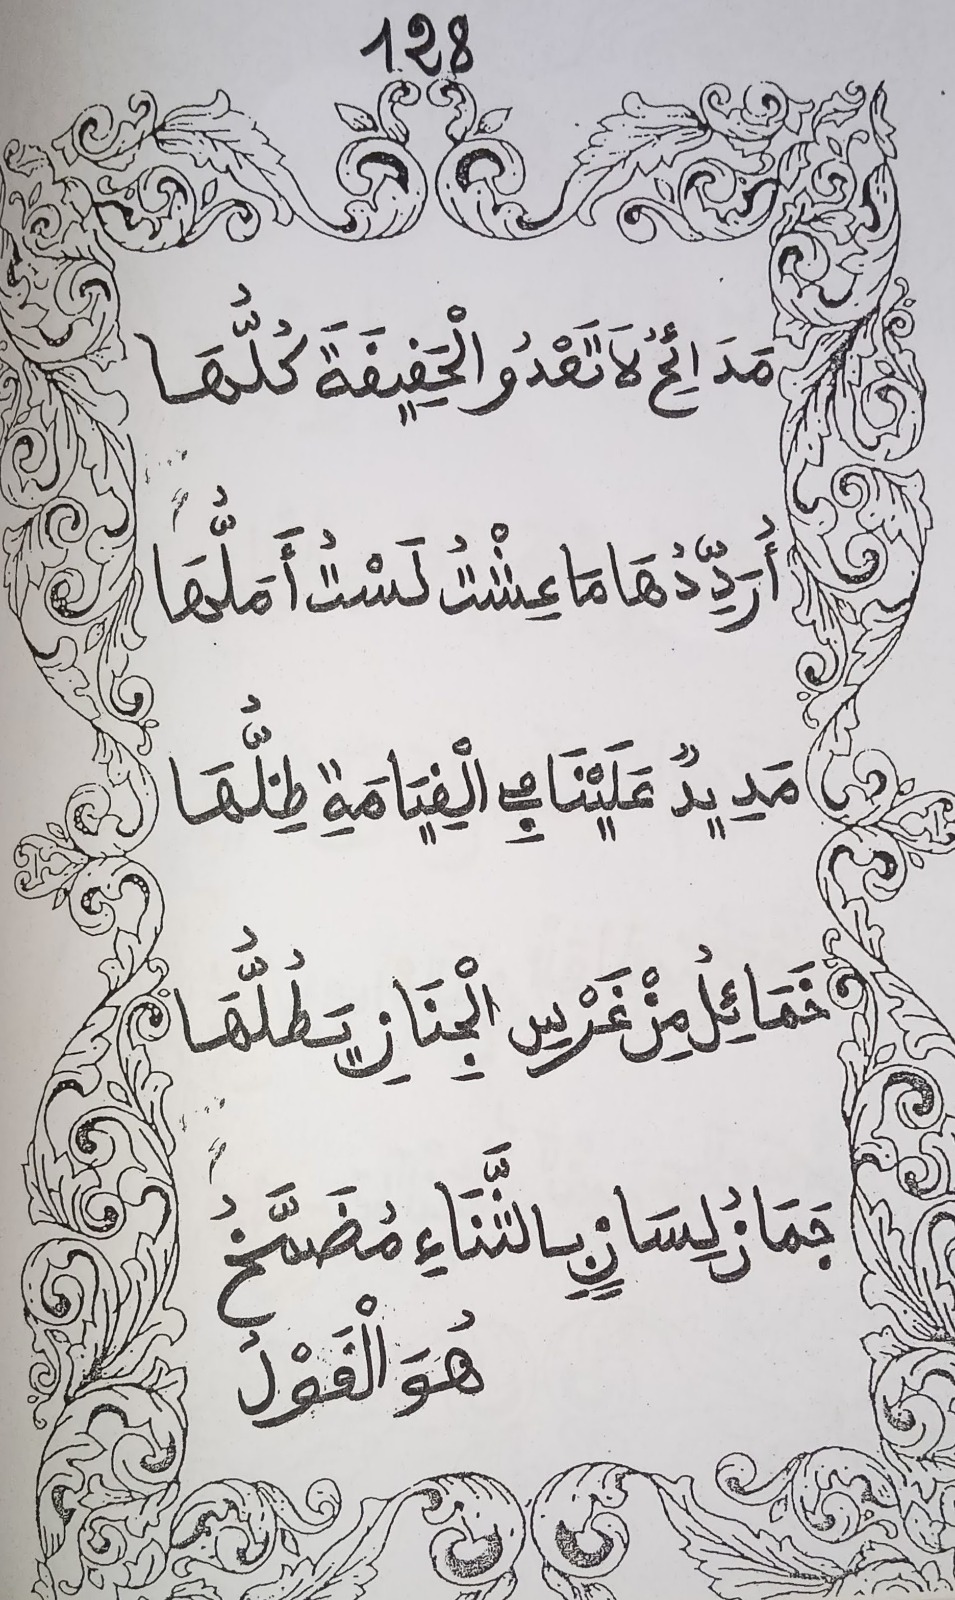 128
مَدَائِحُ لَا تَعْدُو الْحَقِيقَةَ كُلُّهَا
أُرَدِّدُهَا مَا عِشْتُ لَسْتُ أَمَلُّهَا
مَدِيدٌ عَلَيْنَا فِي الْقِيَامَةِ ظِلُّهَا
خَمَائِلُ مِنْ غَرْسِ الْجِنَانِ يَطُلُّهَا
جَمَانُ لِسَانٍ بِالثَّنَاءِ مُضَمَّخُ
هُوَ الْقَوْلُ